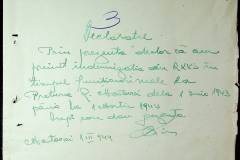 3
Declaratie
Prin prezenta declar că am
primit indemnizatia din
timpul functionarii mele la
Pretura Pl. dela 1 Iunie 1943
până la 1 Martie 1944
Drept care dau prezenta
1 III 944